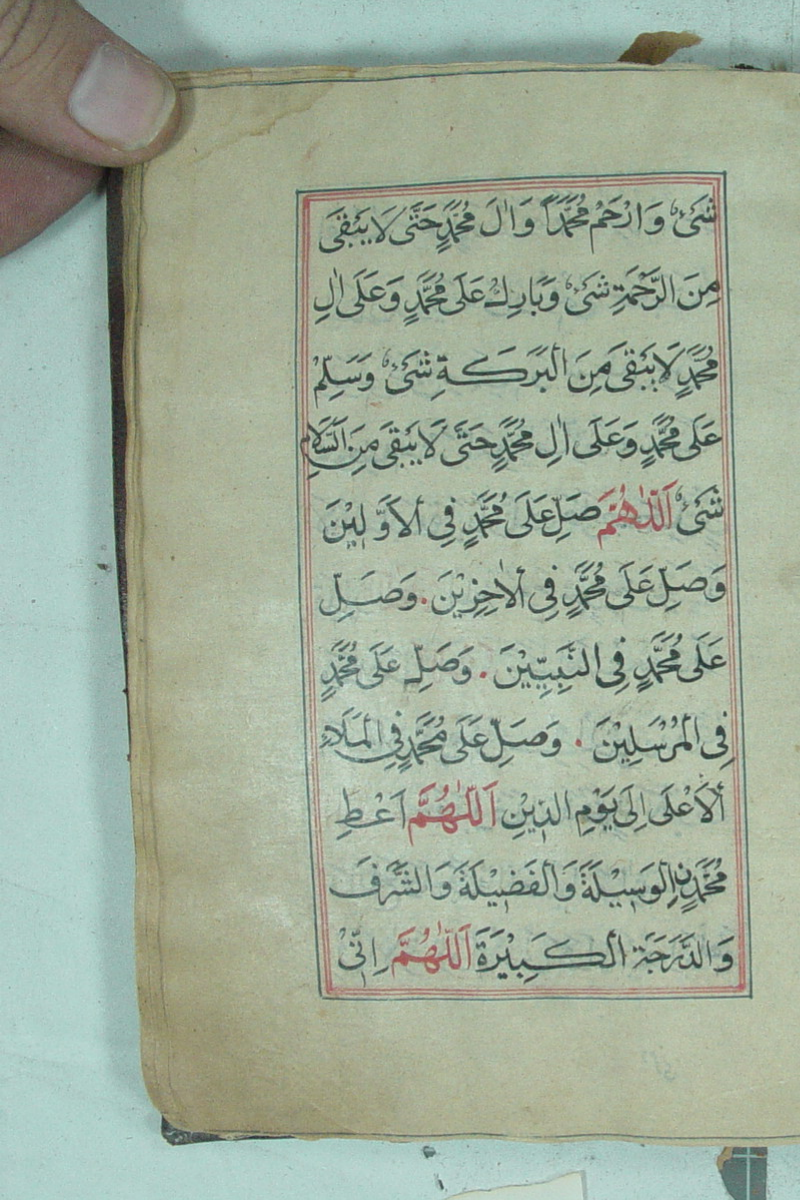 شَیْءٌ وَارْحَمْ مُحَمَّدًا وَاٰلَ مُحَمَّدٍ حَتّٰی لَا يَبْقٰی
مِنَ الرَّحْمَةِ شَیْءٌ وَبَارِكْ عَلٰی مُحَمَّدٍ وَعَلٰی اٰلِ
مُحَمَّدٍ لَا يَبْقٰی مِنَ الْبَرَكَةِ شَیْءٌ وَسَلِّمْ
عَلٰی مُحَمَّدٍ وَعَلٰی اٰلِ مُحَمَّدٍ حَتّٰی لَا يَبْقٰی مِنَ السَّلَامِ
شَیْءٌ اَللّٰهُمَّ صَلِّ عَلٰی مُحَمَّدٍ فِی الْاَوَّلِيْنَ
وَصَلِّ عَلٰی مُحَمَّدٍ فِی الْاٰخِرِيْنَ . وَصَلِّ
عَلٰی مُحَمَّدٍ فِی النَّبِيِّيْنَ . وَصَلِّ عَلٰی مُحَمَّدٍ
فِی الْمُرْسَلِيْنَ . وَصَلِّ عَلٰی مُحَمَّدٍ فِی الْمَلَاءِ
الْاَعْلٰی اِلٰی يَوْمِ الدِّيْنِ اَللّٰهُمَّ اَعْطِ
مُحَمَّدَنِ الْوَسِيْلَةَ وَالْفَضِيْلَةَ وَالشَّرَفَ
وَالدَّرَجَةَ الْكَبِيْرَةَ اَللّٰهُمَّ اِنِّیْ